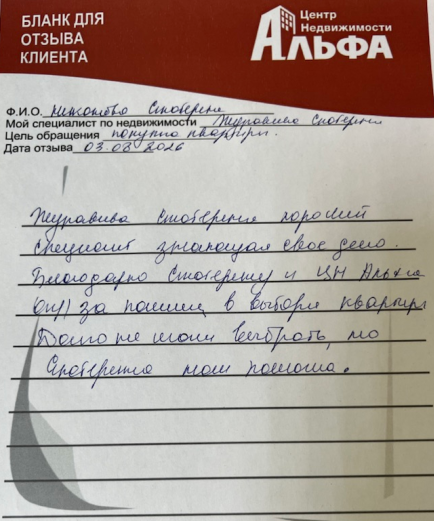 БЛАНК ДЛЯ
ОТЗЫВА
КЛИЕНТА
Центр
Недвижимости
АЛЬФА
Ф.И.О.
Мой специалист по недвижимости Журавлева Екатерина
Цель обращения покупка квартиры.
Дата отзыва 03.08 2026
Журавлева Екатерина хороший
специалист знающая свое дело.
Благодарю Екатерину и ЦН Альфа
за помощь в выборе квартиры
Долго не могли выбрать, но
Екатерина нам помогла.